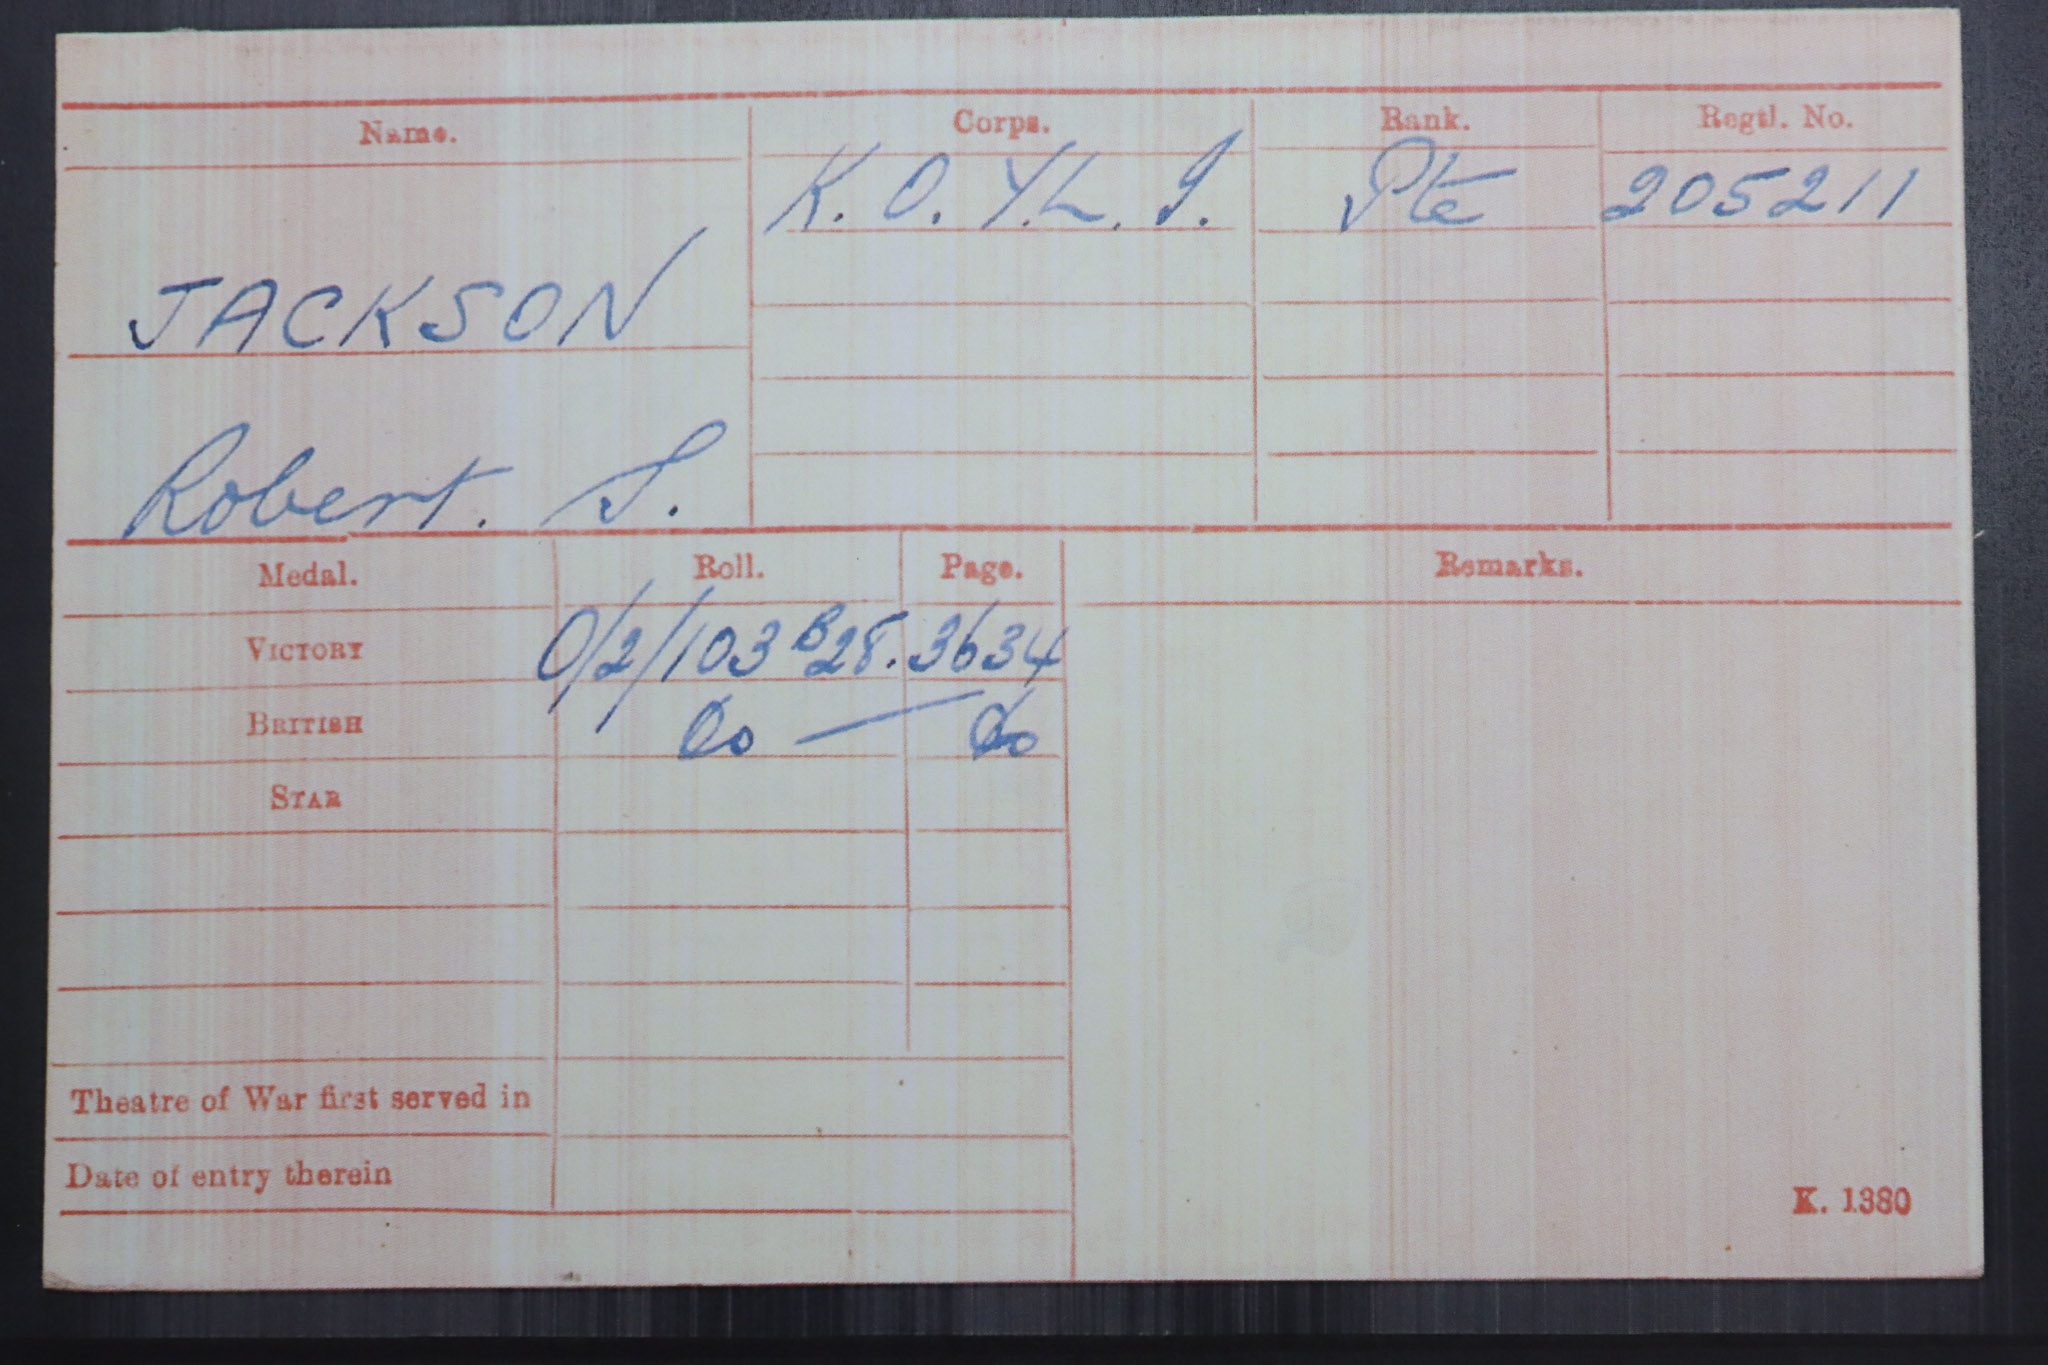 Name. Corps. Rank. Regtl. No.
K. O. Y. L. I. Pte 205211
JACKSON
Robert. S.
Medal. Roll. Page. Remarks.
VICTORY O/2/103 B28. 3634
BRITISH Do — Do
STAR
Theatre of War first served in
Date of entry therein
K. 1380